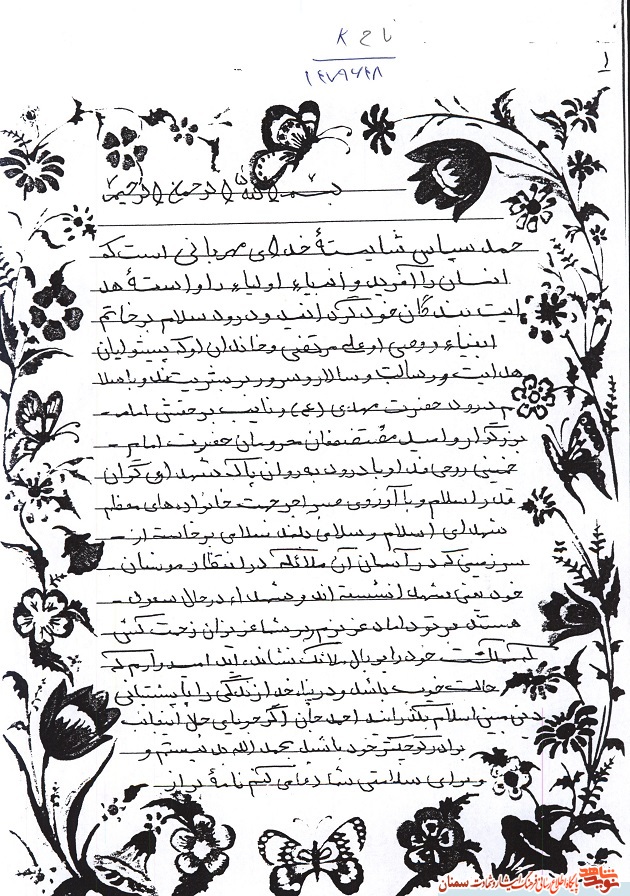 ن ا ح ۲
۱۴۷۹۶۴۸
۱
بسم الله الرحمن الرحیم
حمد سپاس شایستهٔ خدای مهربانی است که
انسان را آفرید و انبیاء اولیاء را واسطهٔ هد
ایت بندگان خود گردانید و درود سلام بر خاتم
انبیاء و وصی او علی مرتضی و خاندان او که پیشوایان
هدایت و رسالت و سالار و سرور بشریت
م درود حضرت مهدی (عج) و نایب بر حقش امام
بزرگوار و امید مستضعفان محرومان حضرت امام
خمینی روحی فداه و با درود به روان پاک شهدای گران
قدر اسلام و با آرزوی صبر اجر جهت خانواده‌های معظم
شهدای اسلام و سلامی بلند سلامی برخاسته از
سرزمینی که در آسمان آن ملائکه در انتظار موسنان
خود یعنی شهدا نشسته اند و شهدا در حال صعود
هستند بر تو داماد عزیزم در شما عزیزان زحمت کش
که خود را بر بال ملائک نشانده‌اید امیدوارم که
حالت خوب باشد و در پناه خدا زندگی را با پشتیبانی
دین مبین اسلام بگذرانید احمد جان اگر جویای حال اینجانب
برادر کوچکتر خود باشید بحمد الله بد نیستم و
و برای سلامتی شما دعا می کنم نامهٔ پر از
پایگاه اطلاع رسانی فرهنگ ایثار و شهادت سمنان
نوید شاهد